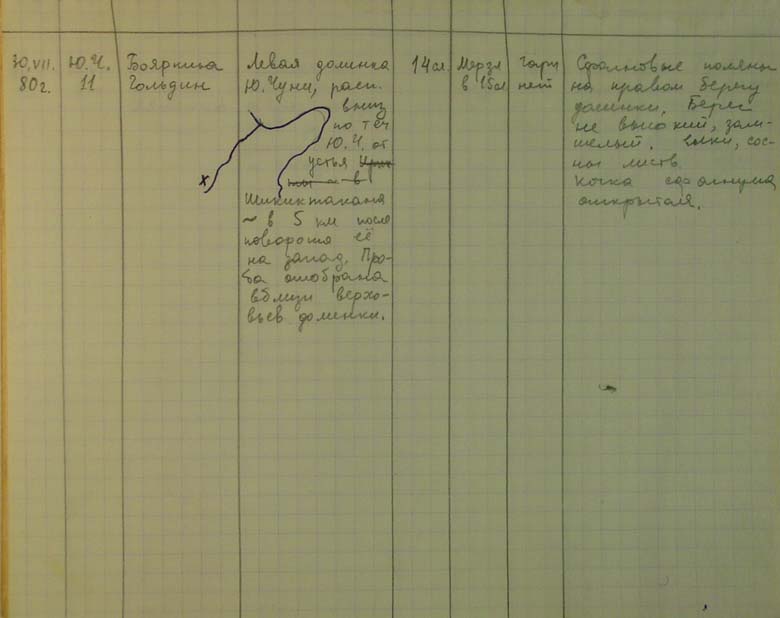 30.VII.
80г.
Ю.Ч.
11
Бояркина
Гольдин
Левая долинка
Ю.Чуни, расп.
вниз
по теч
Ю.Ч. от
устья
~ в
Шикиктакана
~ в 5 км после
поворота её
на запад. Про-
ба отобрана
вблизи верхо-
вьев долинки.
14сл.
Мерзл
в 15сл
гари
нет
Сфагновые поляны
на правом берегу
долинки. Берег
не высокий, зам-
шелый. елки, сос-
ны листв
Кочка сфагнума
открытая.